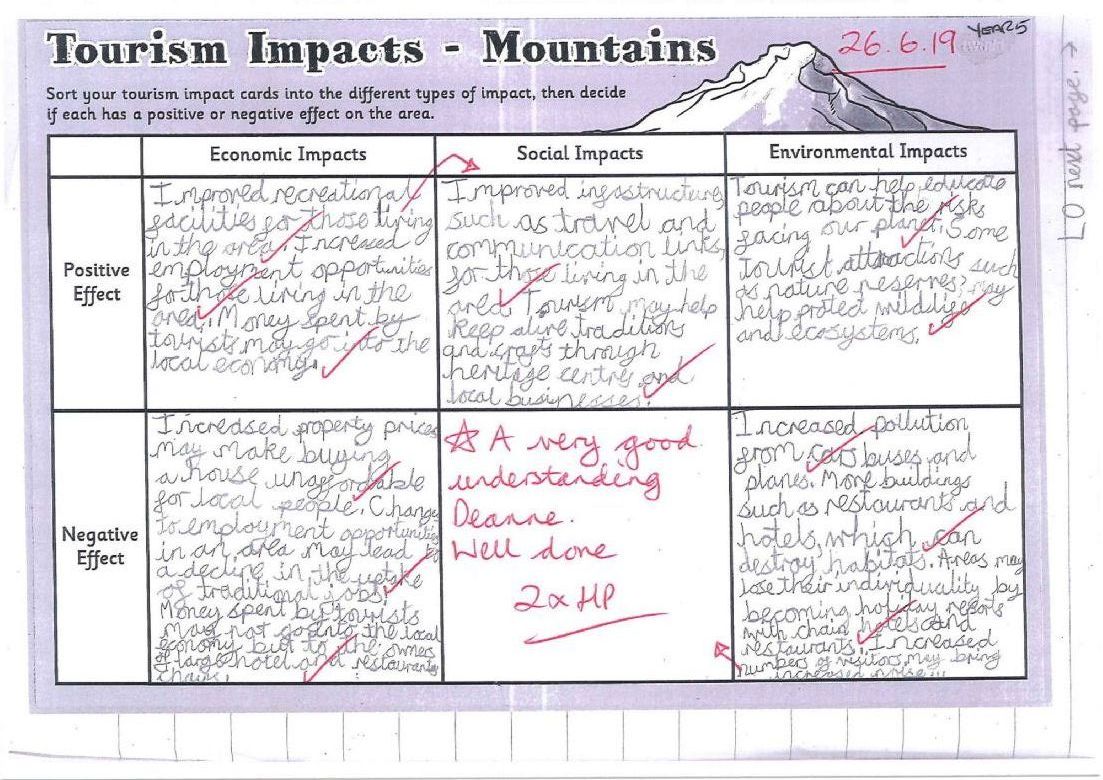 Tourism Impacts - Mountains
26.6.19
YEAR 5
Sort your tourism impact cards into the different types of impact, then decide
if each has a positive or negative effect on the area.
LO7 next page. →
Economic Impacts
Social Impacts
Environmental Impacts
Positive
Effect
Improved recreational
facilities for those living
in the area. Increased
employment opportunities
for those living in the
area. Money spent by
tourists may go into the
local economy.
Improved infrastructure
such as travel and
communication links
for those living in the
area. Tourism may help
keep alive traditions
and crafts through
heritage centres and
local businesses.
Tourism can help educate
people about the risks
facing our planet. Some
tourist attractions such
as nature reserves, may
help protect wildlife
and ecosystems.
Negative
Effect
Increased property prices
may make buying
a house unaffordable
for local people. Changes
to employment opportunities
in an area may lead to
a decline in the uptake
of traditional jobs.
Money spent by tourists
may not go into the local
economy but to the owners
of large hotel and restaurants
chains.
☆ A very good
understanding
Deanne.
Well done
2x HP
Increased pollution
from cars buses and
planes. More buildings
such as restaurants and
hotels, which can
destroy habitats. Areas may
lose their individuality by
becoming holiday resorts
with chain hotels and
restaurants. Increased
numbers of visitors may bring
increased noise!!!